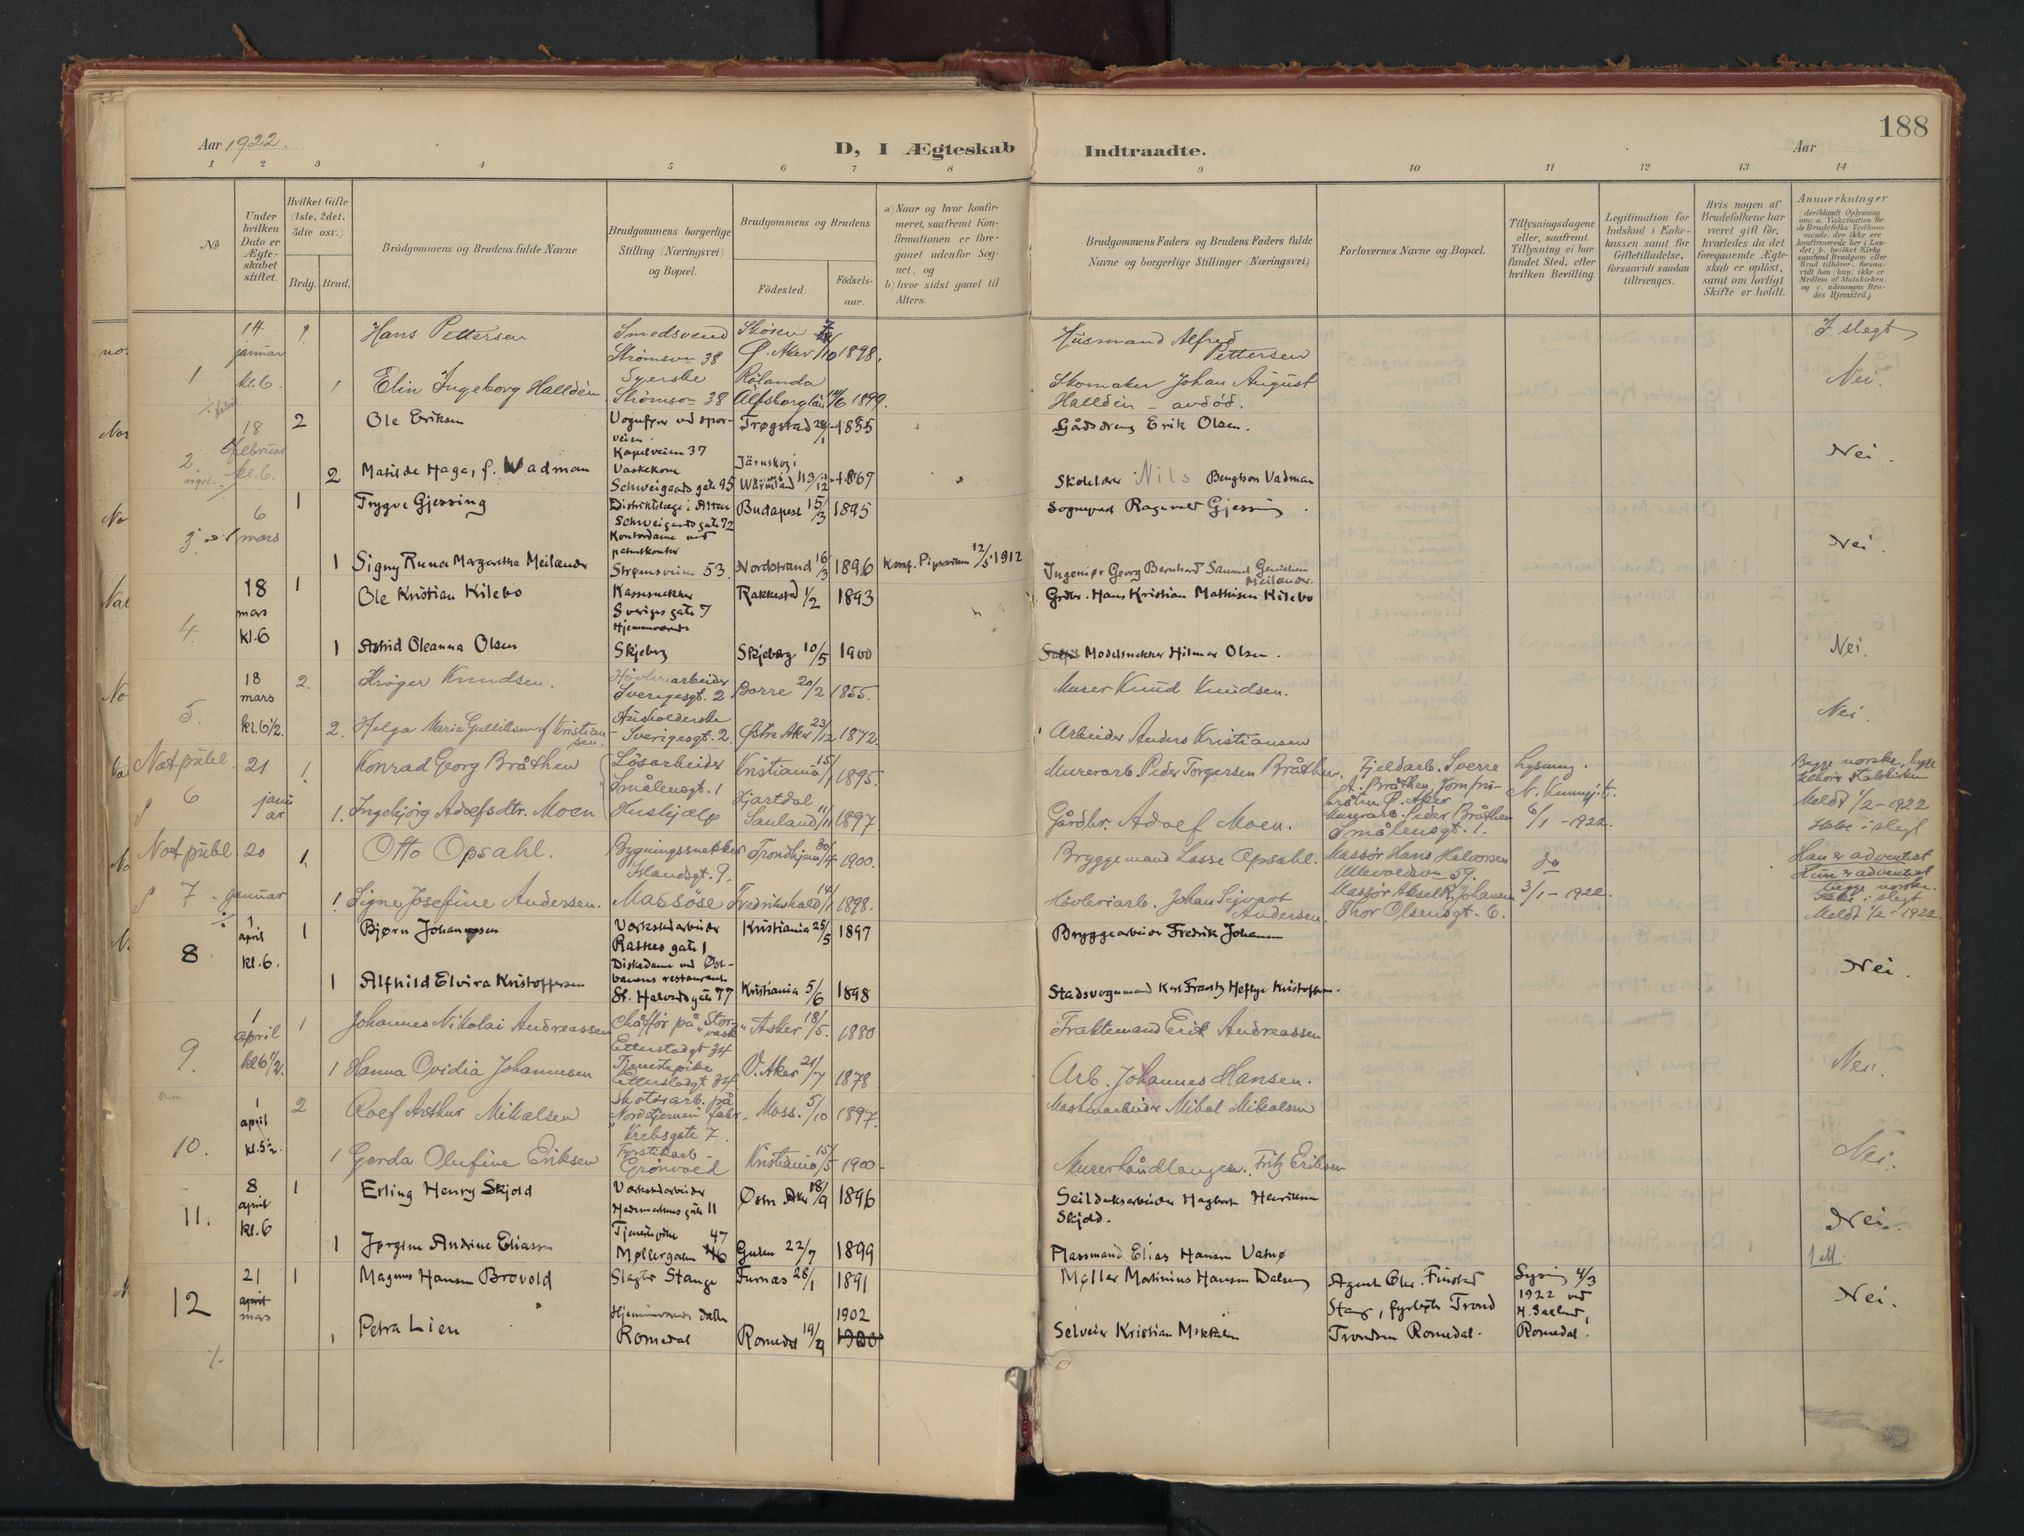 188
Aar 1922.
D, I Ægteskab Indtraadte.
Aar
1 2 3 4 5 6 7 8 9 10 11 12 13 14
No
Under hvilken Dato er Ægteskabet stiftet.
Hvilket Gifte (1ste, 2det, 3die osv.)
Brdg. Brud.
Brudgommens og Brudens fulde Navne
Brudgommens borgerlige Stilling (Næringsvei) og Bopæl.
Brudgommens og Brudens
Födested.
Födselsaar.
a) Naar og hvor konfirmeret, saafremt Konfirmationen er foregaaet udenfor Sognet, og
b) hvor sidst gaaet til Alters.
Brudgommens Faders og Brudens Faders fulde Navne og borgerlige Stillinger (Næringsvei)
Forlovernes Navne og Bopæl.
Tillysningsdagene eller, saafremt Tillysning ei har fundet Sted, efter hvilken Bevilling.
Legitimation for Indskud i Enkekassen samt for Giftetilladelse, forsaavidt saadan tiltrænges.
Hvis nogen af Brudefolkene har været gift før, hvorledes da det foregaaende Ægteskab er oplöst, samt om lovligt Skifte er holdt.
Anmærkninger
1
14 januar kl. 6.
1
Hans Pettersen
Smedsvend Strømsvn 38
Ø. Aker /10 1898.
Husmand Alfred Pettersen
I slegt
Nei.
1
Elin Ingeborg Halldén
Syerske Strømsvn 38
Rölanda Älfsborglän 14/6 1899.
Skomaker Johan August Halldén - avdöd.
2
18 februar kl. 6.
2
Ole Eriksen
Kapelveien 37
Trøgstad 1855
Gårdsdreng Erik Olsen.
Nei.
2
Matilde Haga, f. Wadman
Vaskekone Schweigaards gate 95
Järnskog i Wärmland 13/12 1867
Skolelærer Nils Bengtson Vadman
3
6 mars
1
Trygve Gjessing
Schweigaards gate 72
Budapest 15/3 1895
Sogneprest Ragnvald Gjessing.
Nei.
1
Signy Runa Margaretha Meilander
Kontordame ved patentkontor Strømsveien 53.
Nordstrand 16/3 1896
Konf. Pipervi​ken 12/5 1912
Ingeniør Georg Bernhard Meilander.
4.
18 mars kl. 6
1
Ole Kristian Kilebo
Kassesnekker Sveriges gate 7
Hjemmeværende
Rakkestad 1/2 1893
Grdbr. Hans Kristian Mathisen Kilebo
Nei.
1
Astrid Oleanna Olsen
Skjeberg
Skjeberg 10/5 1900
Modelsnekker Hilmar Olsen.
5.
18 mars kl. 6 1/2.
2.
Krøger Knudsen.
Høvleriarbeider Sverigesgt. 2
Borre 20/2 1855.
Murer Knud Knudsen.
Nei.
2.
Helga Marie Gulliksen f. Kristiansen.
Husholderske Sverigesgt. 2.
Østre Aker 23/12 1872.
Arbeider Anders Kristiansen
Not publ. 6
21 januar
1
Konrad Georg Bråthen
Løsarbeider Smålensgt. 1
Kristiania 15/1 1895.
Murerarb. Peder Torgersen Bråthen.
Fjeldarb. Sverre A. Bråthen, Ø. Aker
Murerarb. Peder Bråthen Smålensgt. 1.
Lysning.
6/1 - 1922.
Begge norske, begge
Meldt 1/2 - 1922
Ikke i slegt
1.
Ingebjörg Adolfsdtr. Moen
Hushjælp
Hjartdal Sauland 11/11 1897.
Gårdbr. Adolf Moen.
Not publ. 7
20 januar
1.
Otto Opsahl.
Bygningssnekker Islandsgt. 9.
Trondhjem 30/4 1900.
Bryggemand Lasse Opsahl.
Massør Hans Halvorsen Ullevoldsvn 59.
Massør Aksel R. Johansen Thor Olsensgt. 6.
do
3/1 - 1922.
Han er adventist
Hun er adventist
begge norske.
Ikke i slegt
Meldt 1/2 - 1922.
1
Signe Josefine Andersen.
Massöse
Fredrikshald 14/1 1898.
Høvleriarb. Johan Sigvart Andersen.
8
1 april kl. 6.
1
Bjørn Johannessen
Verkstedarbeider Rasnes gate 1
Kristiania 25/5 1897
Bryggearbeider Fredrik Johansen
Nei.
1
Alfhild Elvira Kristoffersen
Diskedame ved Østbanens restaurant St. Halvards gate 77
Kristiania 5/6 1898
Stadsvognmand Karl Frantz Heftye Kristoffersen.
9.
1 april kl 6 1/2.
1
Johannes Nikolai Andreassen
Chåffør på "Storvask" Etterstadgt 34
Asker 18/5. 1880
Fraktemand Erik Andreassen
Nei.
1
Hanna Ovidia Johannesen
Tjenestepike Etterstadgt. 34
V. Aker 21/7 1878
Arb. Johannes Hansen.
10.
1 april kl. 5 1/2.
2
Rolf Arthur Mikalsen
Skotøiarb. på "Nordstjernen" fabr. Krebsgate 7.
Moss. 5/10 1897.
Maskinarbeider Mikal Mikalsen
Nei.
1
Gerda Olufine Eriksen
Fyrstikarb. Grönvold
Kristiania 15/5 1900
Murerhåndlanger. Fritz Eriksen
11.
8 april kl. 6
1
Erling Henry Skjold
Verkstedarbeider Hedemarkens gate 11
Østre Aker 18/9 1896
Seildukarbeider Hagbart Henriksen Skjold.
Nei.
1
Jørgine Andrine Eliassen
Tjenestepike Møllergaten 47
Gulen 22/7 1899
Plassmand Elias Hansen Vatnø
1 att.
12
21 april mars
1
Magnus Hansen Brovold
Slagter Stange
Furnes 28/1 1891
Møller Martinius Hansen Dalseng
Agent Olav Finstad Stange, Trond Trondsen Romedal.
Lysning 4/3 1922 ved Romedal.
Nei.
1
Petra Lien
Hjemmeværende datter Romedal
Romedal 19/ 1902 1900
Selveier Kristian Mikkelsen